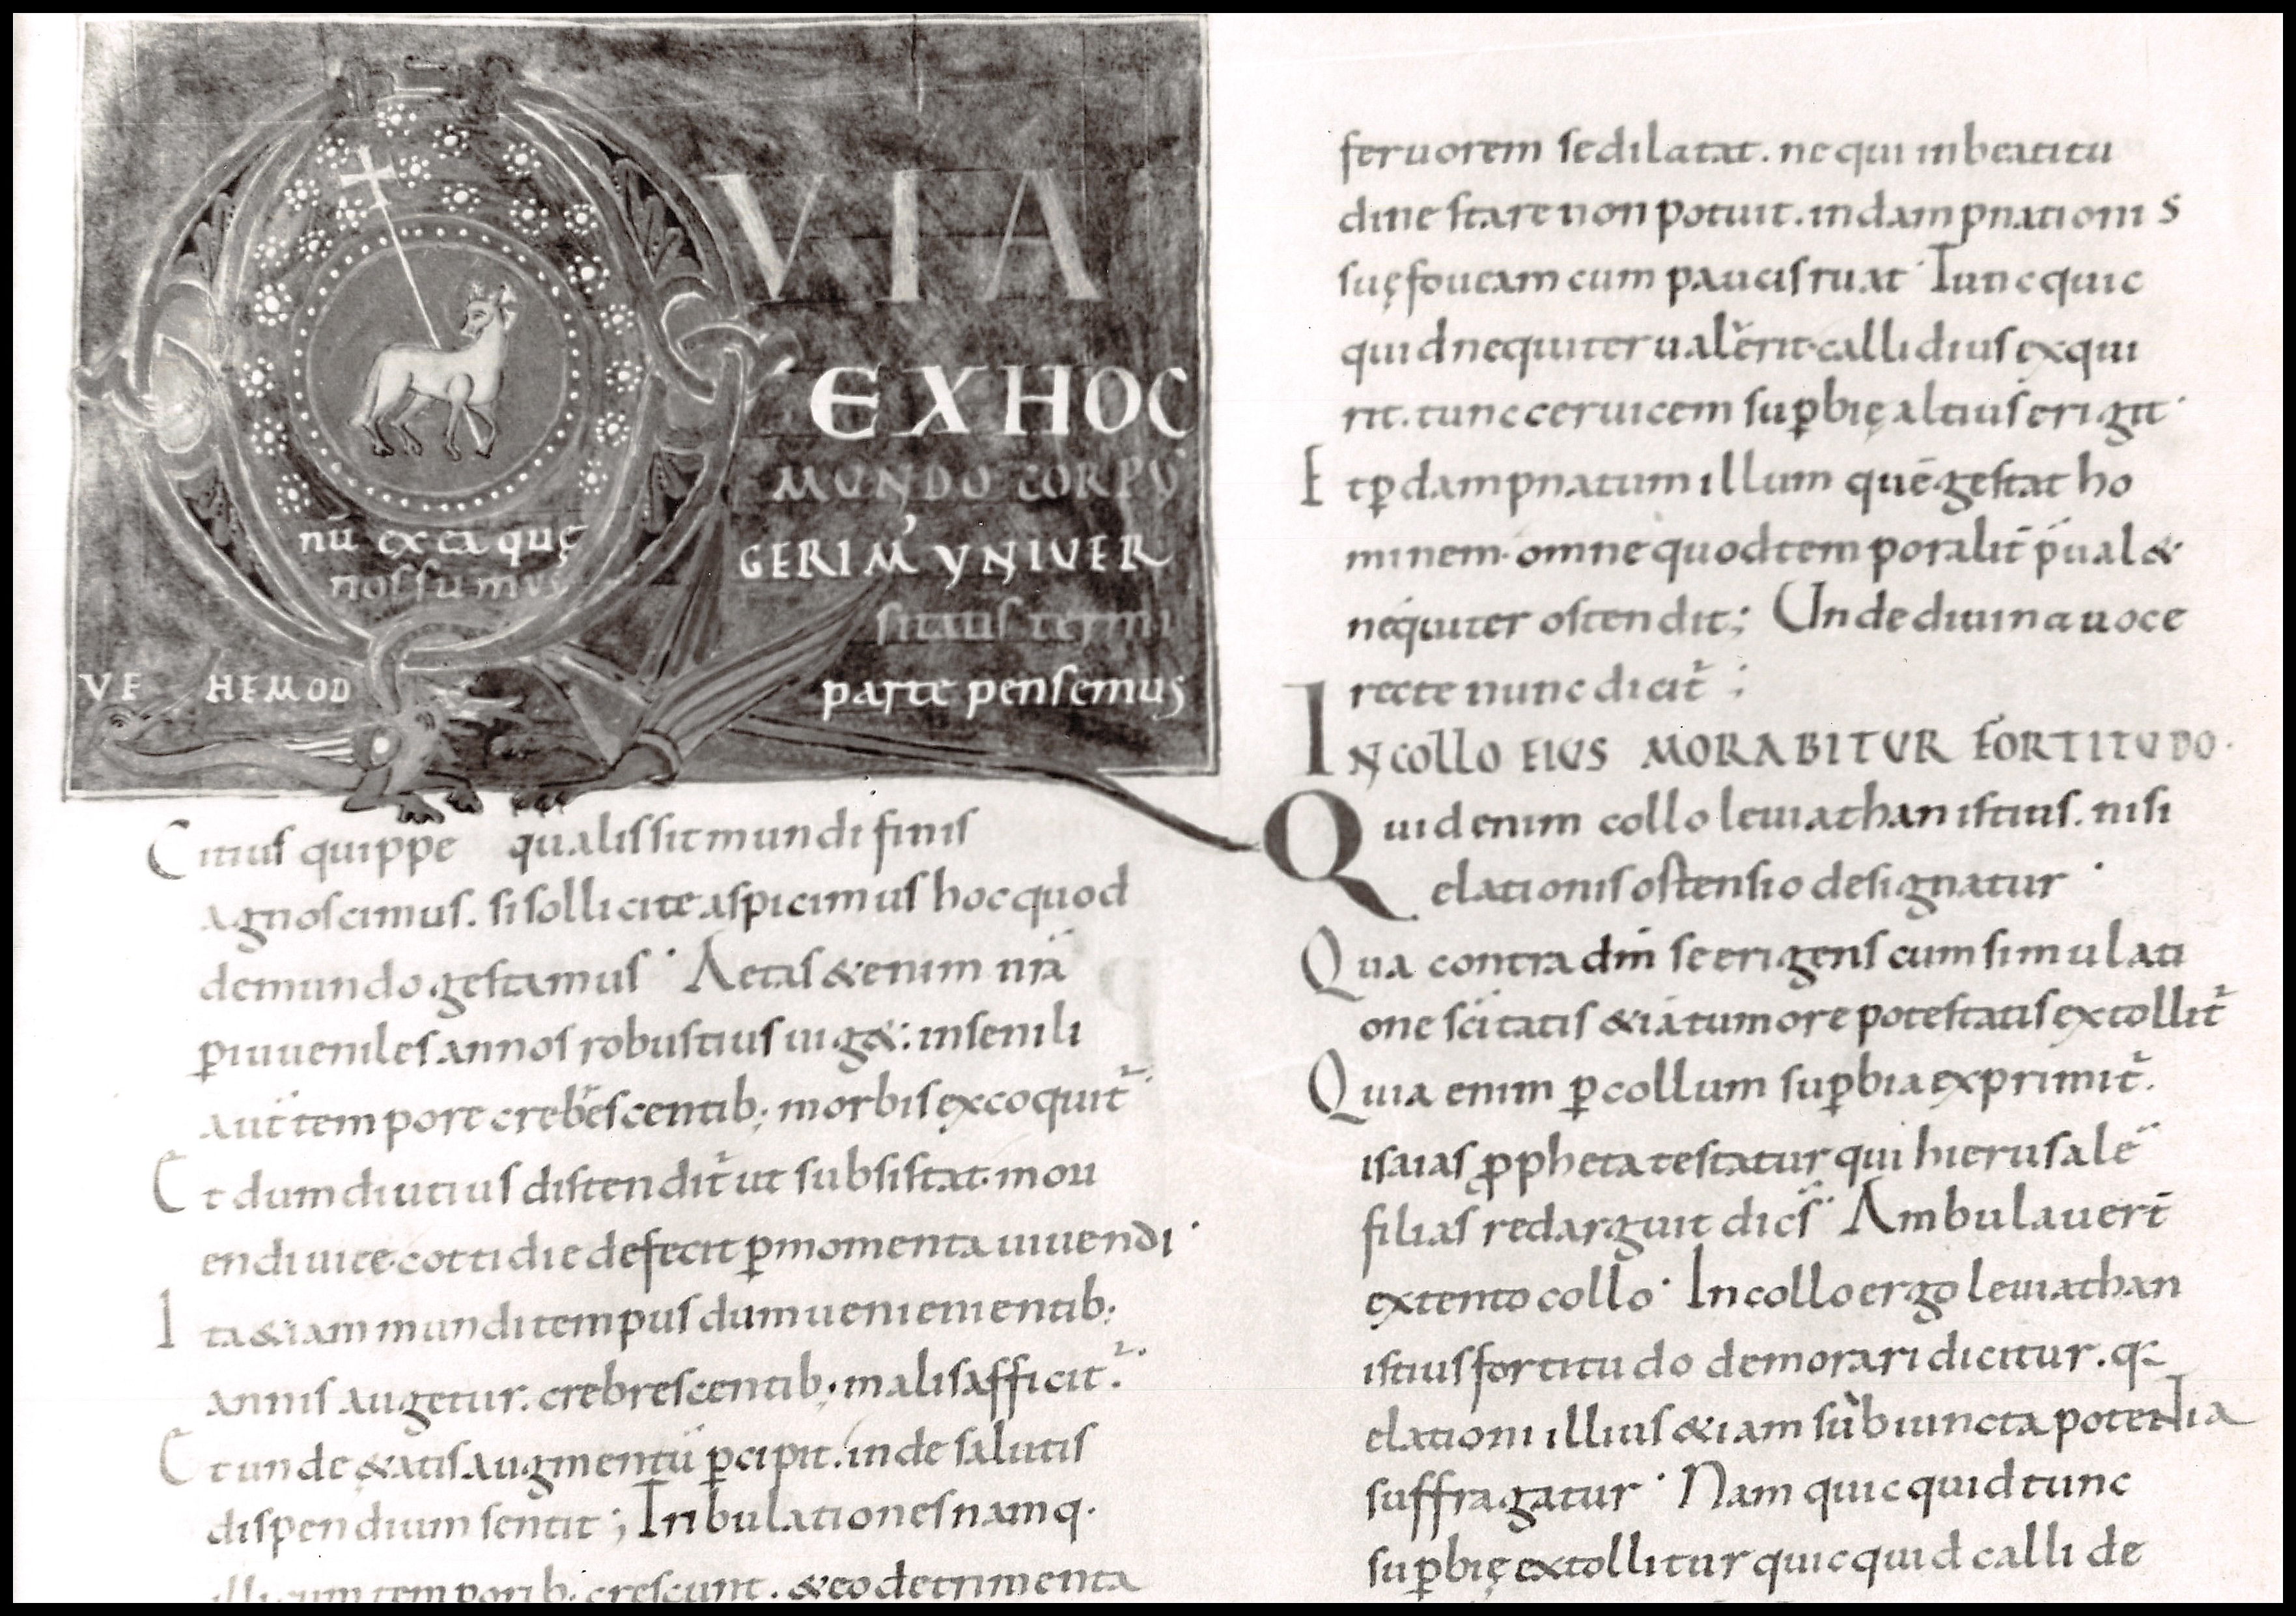 Q VIA
EX HOC
MUNDO CORPU
GERIM' UNIVER
sitatis termi
nū ex ea quę
nos sumus
parte pensemus
VE HEMOD
Citius quippe qualis sit mundi finis
agnoscimus. si sollicite aspicimus hoc quod
de mundo gestamus· Aetas & enim nr̄a
p̱ iuueniles annos robustius uig&: in senili
aut̄ tempore crebescentib; morbis excoquit᷑
Et dum diutius distendit᷑ ut subsistat. in ou
endi uice. cottidie defecit p̱ momenta uiuendi·
Ita & iam mundi tempus dum uenienientib;
annis augetur. crebrescentib; malis afficit᷑.
Et unde ętatis augmentū p̱cipit. inde salutis
dispendium sentit; Tribulationes namq.
illi cum temporib; crescunt. & eo detrimenta
feruorem se dilatat. ne qui in beatitu
dine stare non potuit. in dampnationis
suę foueam cum paucis ruat· Tunc quic
quid nequiter ualerit. callidius exqui
rit. tunc ceruicem sup̱bię altius erigit·
Et p̱ dampnatum illum quē gestat ho
minem. omne quod temporalit̄ p̄ual&
nequiter ostendit; Unde diuina uoce
recte nunc dicit᷑;
IN COLLO EIUS MORABITUR FORTITUDO·
Quid enim collo leuiathan istius. nisi
elationis ostensio designatur·
Qua contra dm̄ se erigens cum simulati
one sc̄itatis & iā tumore potestatis extollit᷑
Quia enim p̱ collum sup̱bia exprimit᷑.
isaias ꝓpheta testatur qui hierusalē
filias redarguit dic̄s· Ambulauer̄t
extento collo· In collo ergo leuiathan
istius fortitudo demorari dicitur. q:
elationi illius & iam subiuncta potentia
suffragatur· Nam quicquid tunc
sup̱bię extollitur quicquid calli de